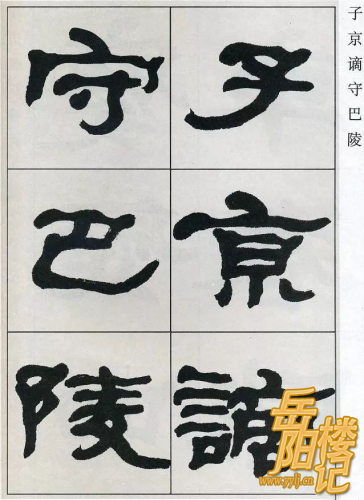 子京谪守巴陵
子京謫
守巴陵
岳阳楼记
www.yylj.cn